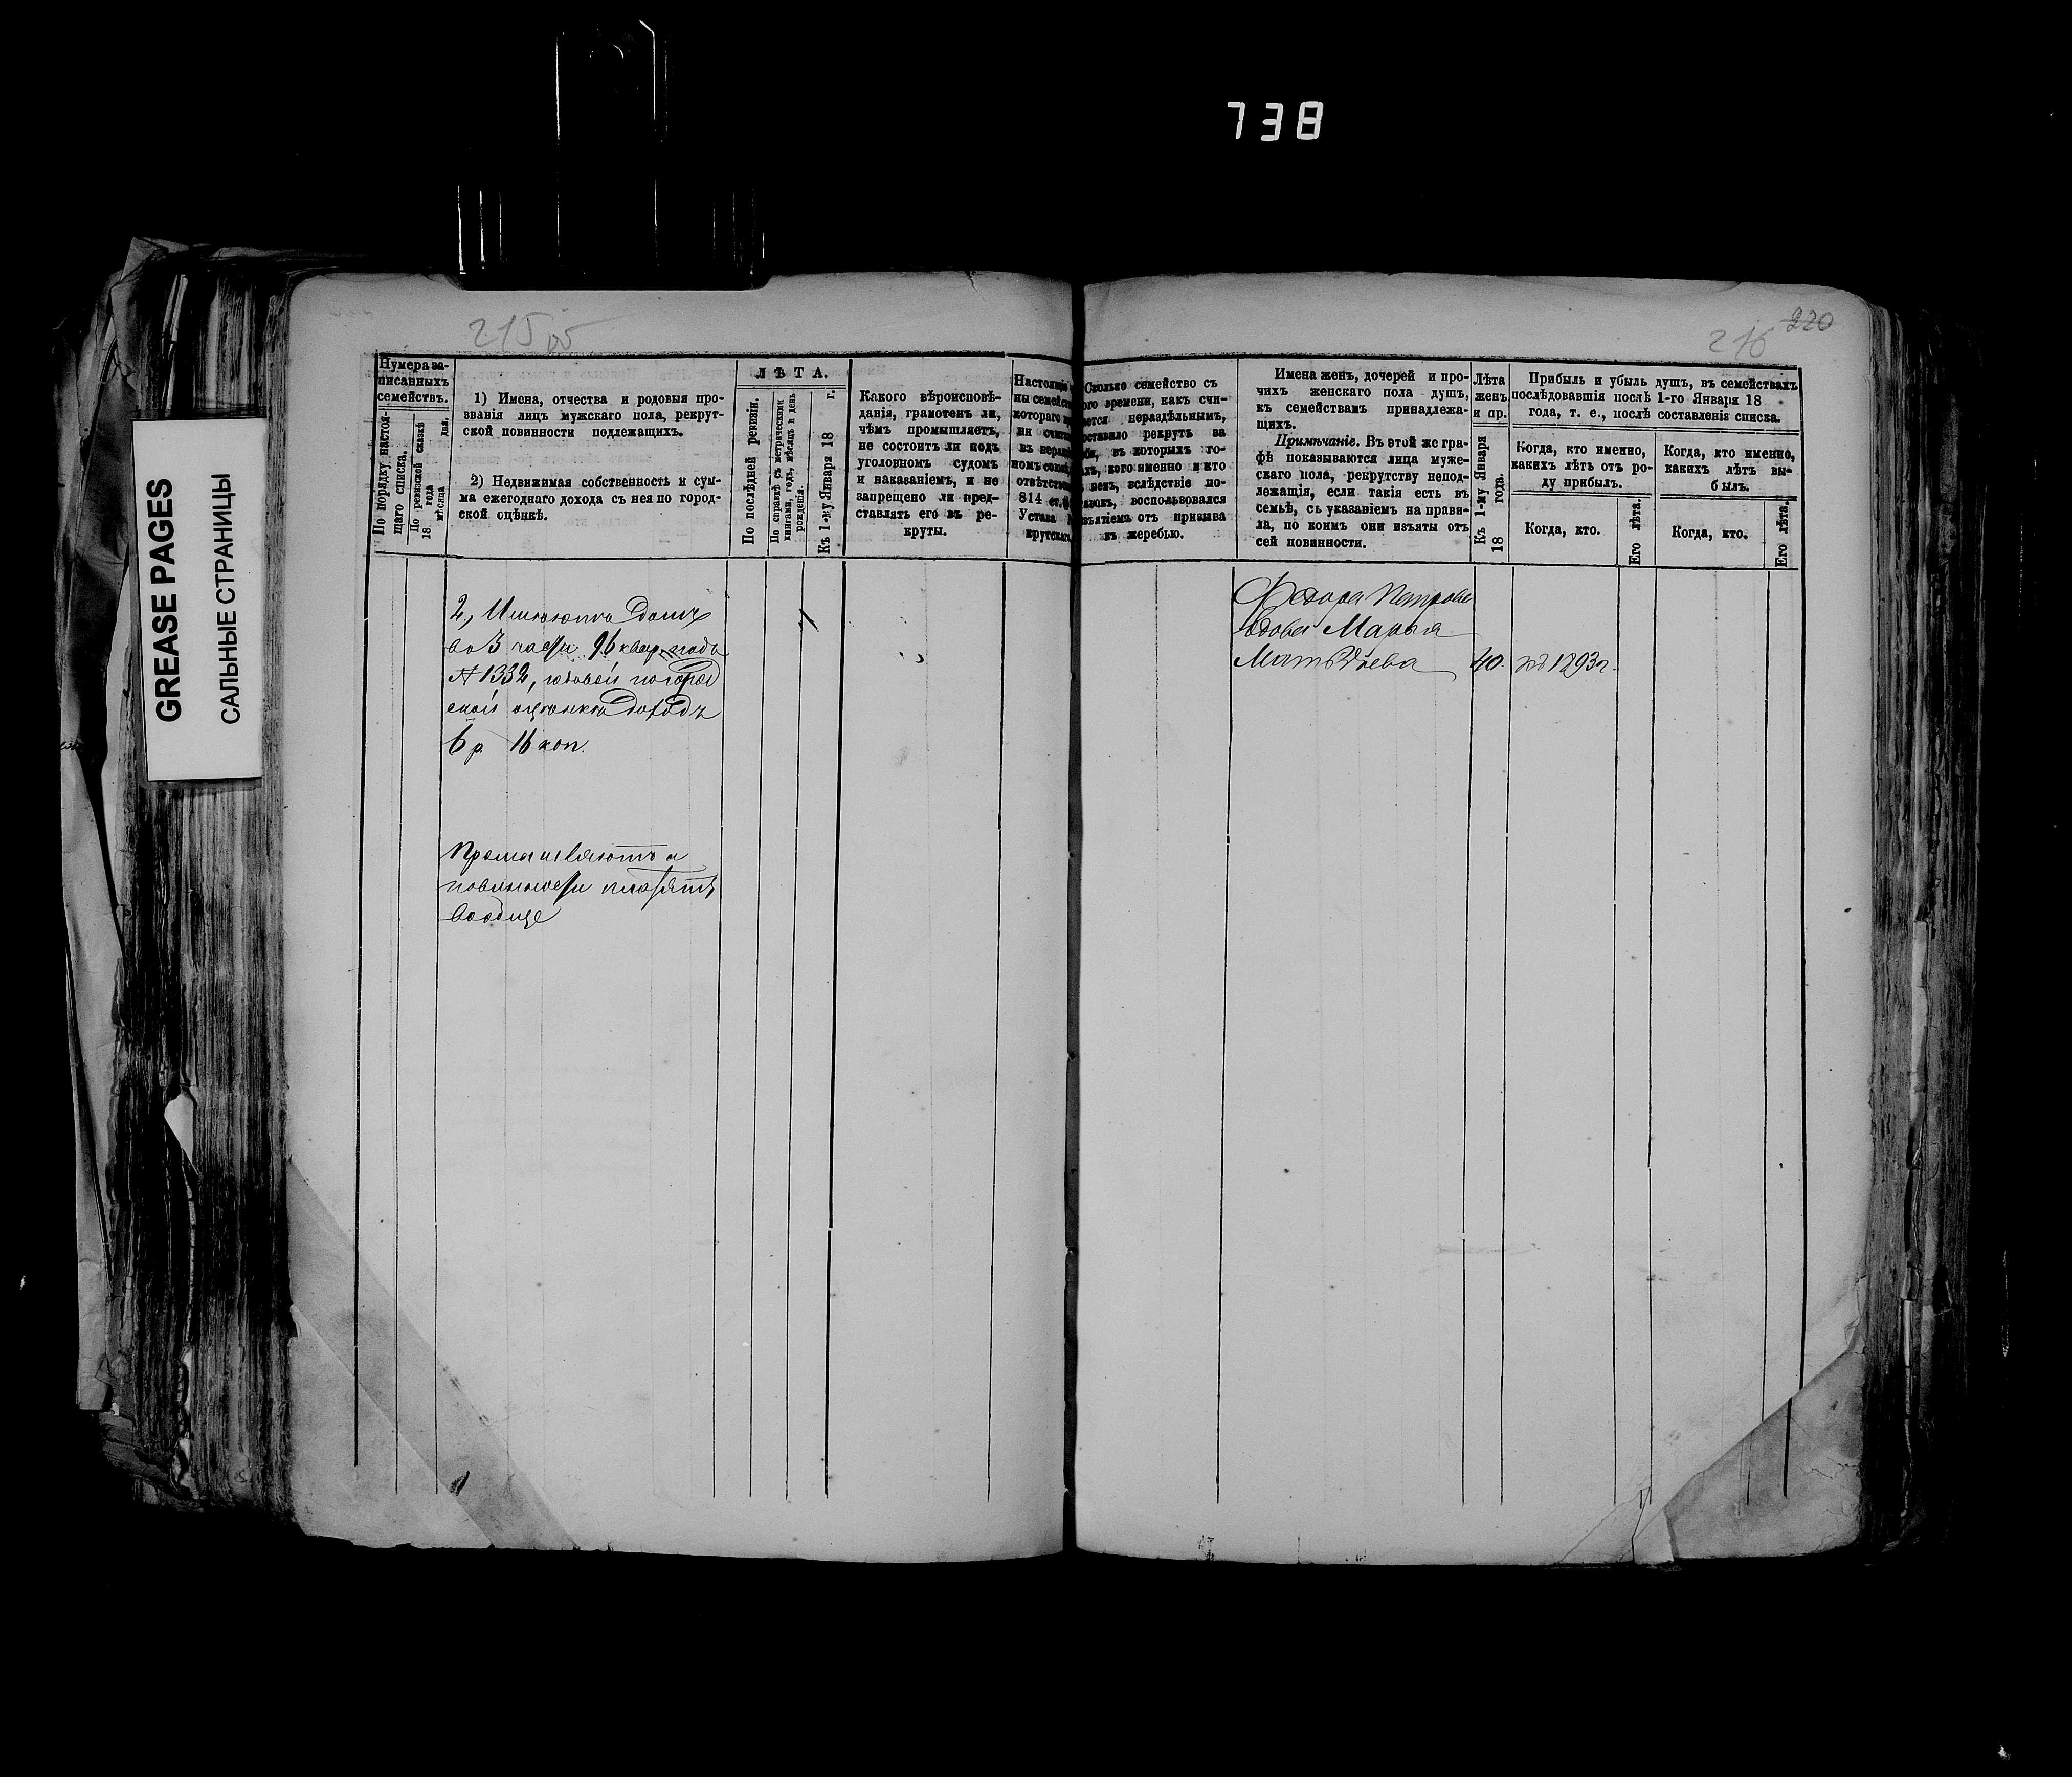 738
GREASE PAGES
САЛЬНЫЕ СТРАНИЦЫ
215 об
216
220
Нумера за-
писанныхъ
семействъ.
По порядку настоя-
щаго списка.
По ревизской сказкѣ
18 года
мѣсяца дня.
1) Имена, отчества и родовыя про-
званія лицъ мужскаго пола, рекрут-
ской повинности подлежащихъ.
2) Недвижимая собственность и сум-
ма ежегоднаго дохода съ нея по город-
ской оцѣнкѣ.
ЛѢТА.
По послѣдней ревизіи.
По справкѣ съ метрическими
книгами, годъ, мѣсяцъ и день
рожденія.
Къ 1-му Января 18 г.
Какого вѣроисповѣ-
данія, грамотенъ ли,
чѣмъ промышляетъ,
не состоитъ ли подъ
уголовномъ судомъ
и наказаніемъ, и не
запрещено ли пред-
ставлять его въ ре-
круты.
Настоящіе
ны семейст
котораго
ни счита
въ нераз
номъ союз
отвѣтств
814 ст.
Устава
крутскаго
Сколько семейство съ
ого времени, какъ счи-
ается нераздѣльнымъ,
оставило рекрутъ за
въ которыхъ го-
кого именно и кто
вслѣдствіе по-
воспользовался
изъятіемъ отъ призыва
къ жеребью.
Имена женъ, дочерей и про-
чихъ женскаго пола душъ,
къ семействамъ принадлежа-
щихъ.
Примѣчаніе. Въ этой же гра-
фѣ показываются лица муже-
скаго пола, рекрутству непод-
лежащія, если такія есть въ
семьѣ, съ указаніемъ на прави-
ла, по коимъ они изъяты отъ
сей повинности.
Лѣта
женъ
и пр.
Къ 1-му Января
18 года.
Прибыль и убыль душъ, въ семействахъ
послѣдовавшія послѣ 1-го Января 18
года, т. е., послѣ составленія списка.
Когда, кто именно,
какихъ лѣтъ отъ ро-
ду прибылъ.
Когда, кто.
Его лѣта.
Когда, кто именно,
какихъ лѣтъ вы-
былъ.
Когда, кто.
Его лѣта.
2, Имѣютъ Домъ
въ 3 части 96 квар. подъ
№ 1332, годовой по город
ской оцѣнкѣ Доходъ
6 р. 16 коп.
Промышляютъ и
повинности платятъ
вообще
Федора Петрова
вдова Марья
Матвѣева
40.
по 1893 г.